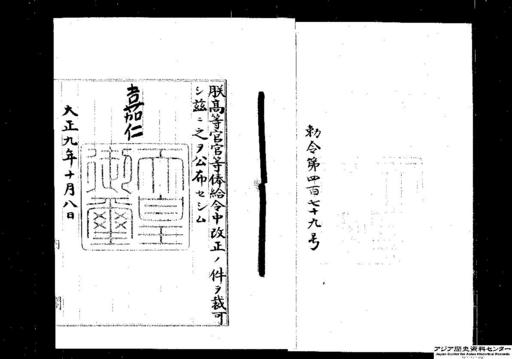 勅令第四百七十九号
朕高等官官等俸給令中改正ノ件ヲ裁可
シ茲ニ之ヲ公布セシム
嘉仁
天皇御璽
大正九年十月八日
アジア歴史資料センター
Japan Center for Asian Historical Records